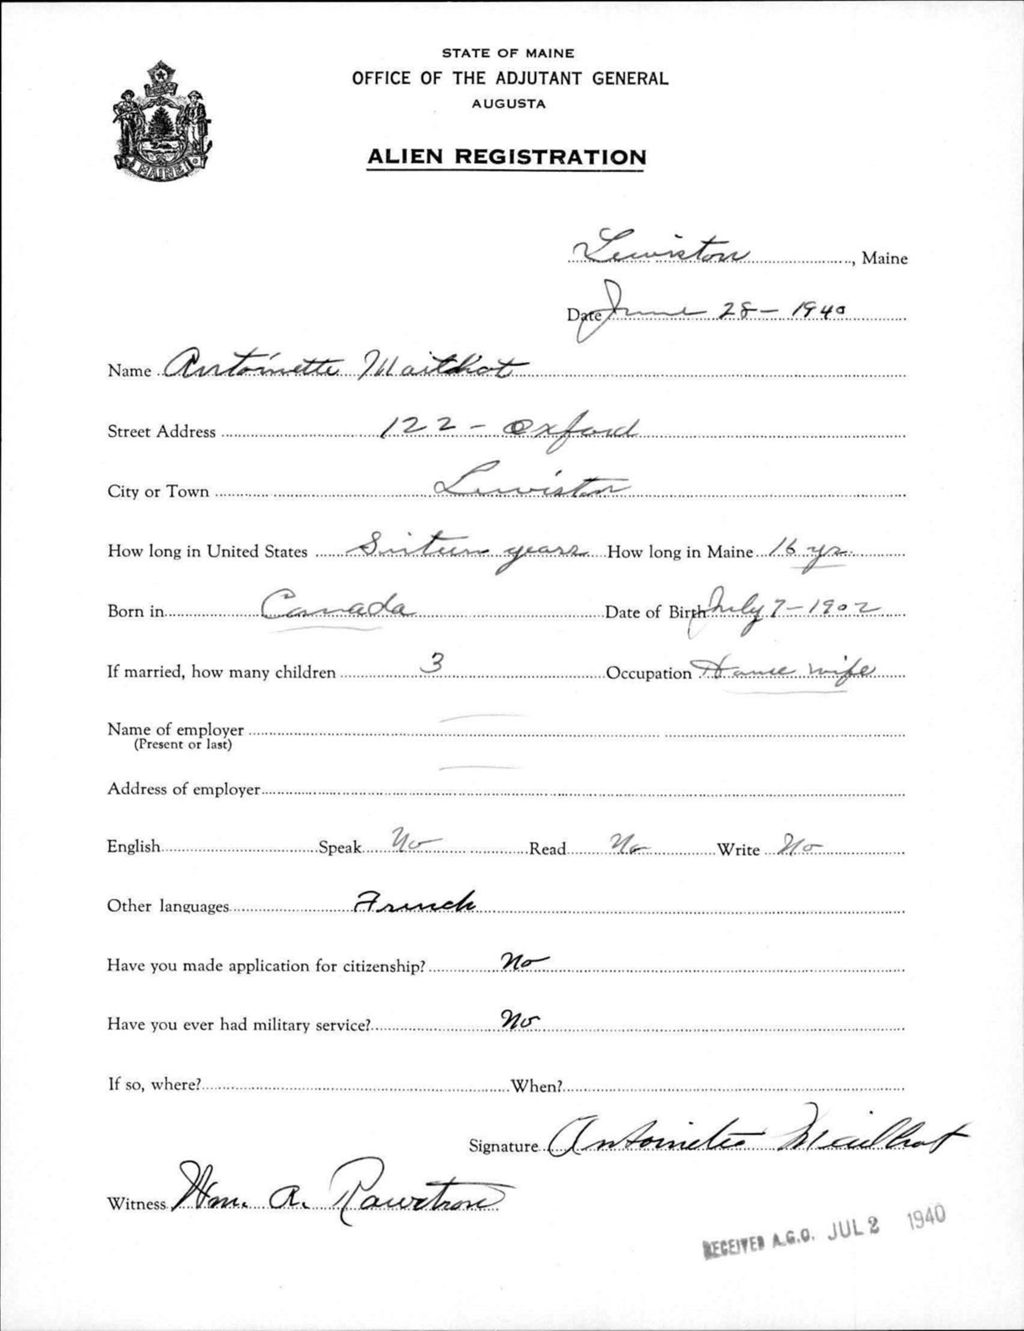 STATE OF MAINE
OFFICE OF THE ADJUTANT GENERAL
AUGUSTA
MAINE
ALIEN REGISTRATION
Lewiston, Maine
Date June 28 - 1940
Name Antoinette Mailhot
Street Address 122 - Oxford
City or Town Lewiston
How long in United States Sixteen years How long in Maine 16 yr.
Born in Canada Date of Birth July 7 - 1902
If married, how many children 3 Occupation House wife
Name of employer
(Present or last)
Address of employer
English Speak No Read No Write No
Other languages French
Have you made application for citizenship? No
Have you ever had military service? No
If so, where? When?
Signature Antoinette Mailhot
Witness Wm. A.
RECEIVED A.G.O. JUL 2 1940